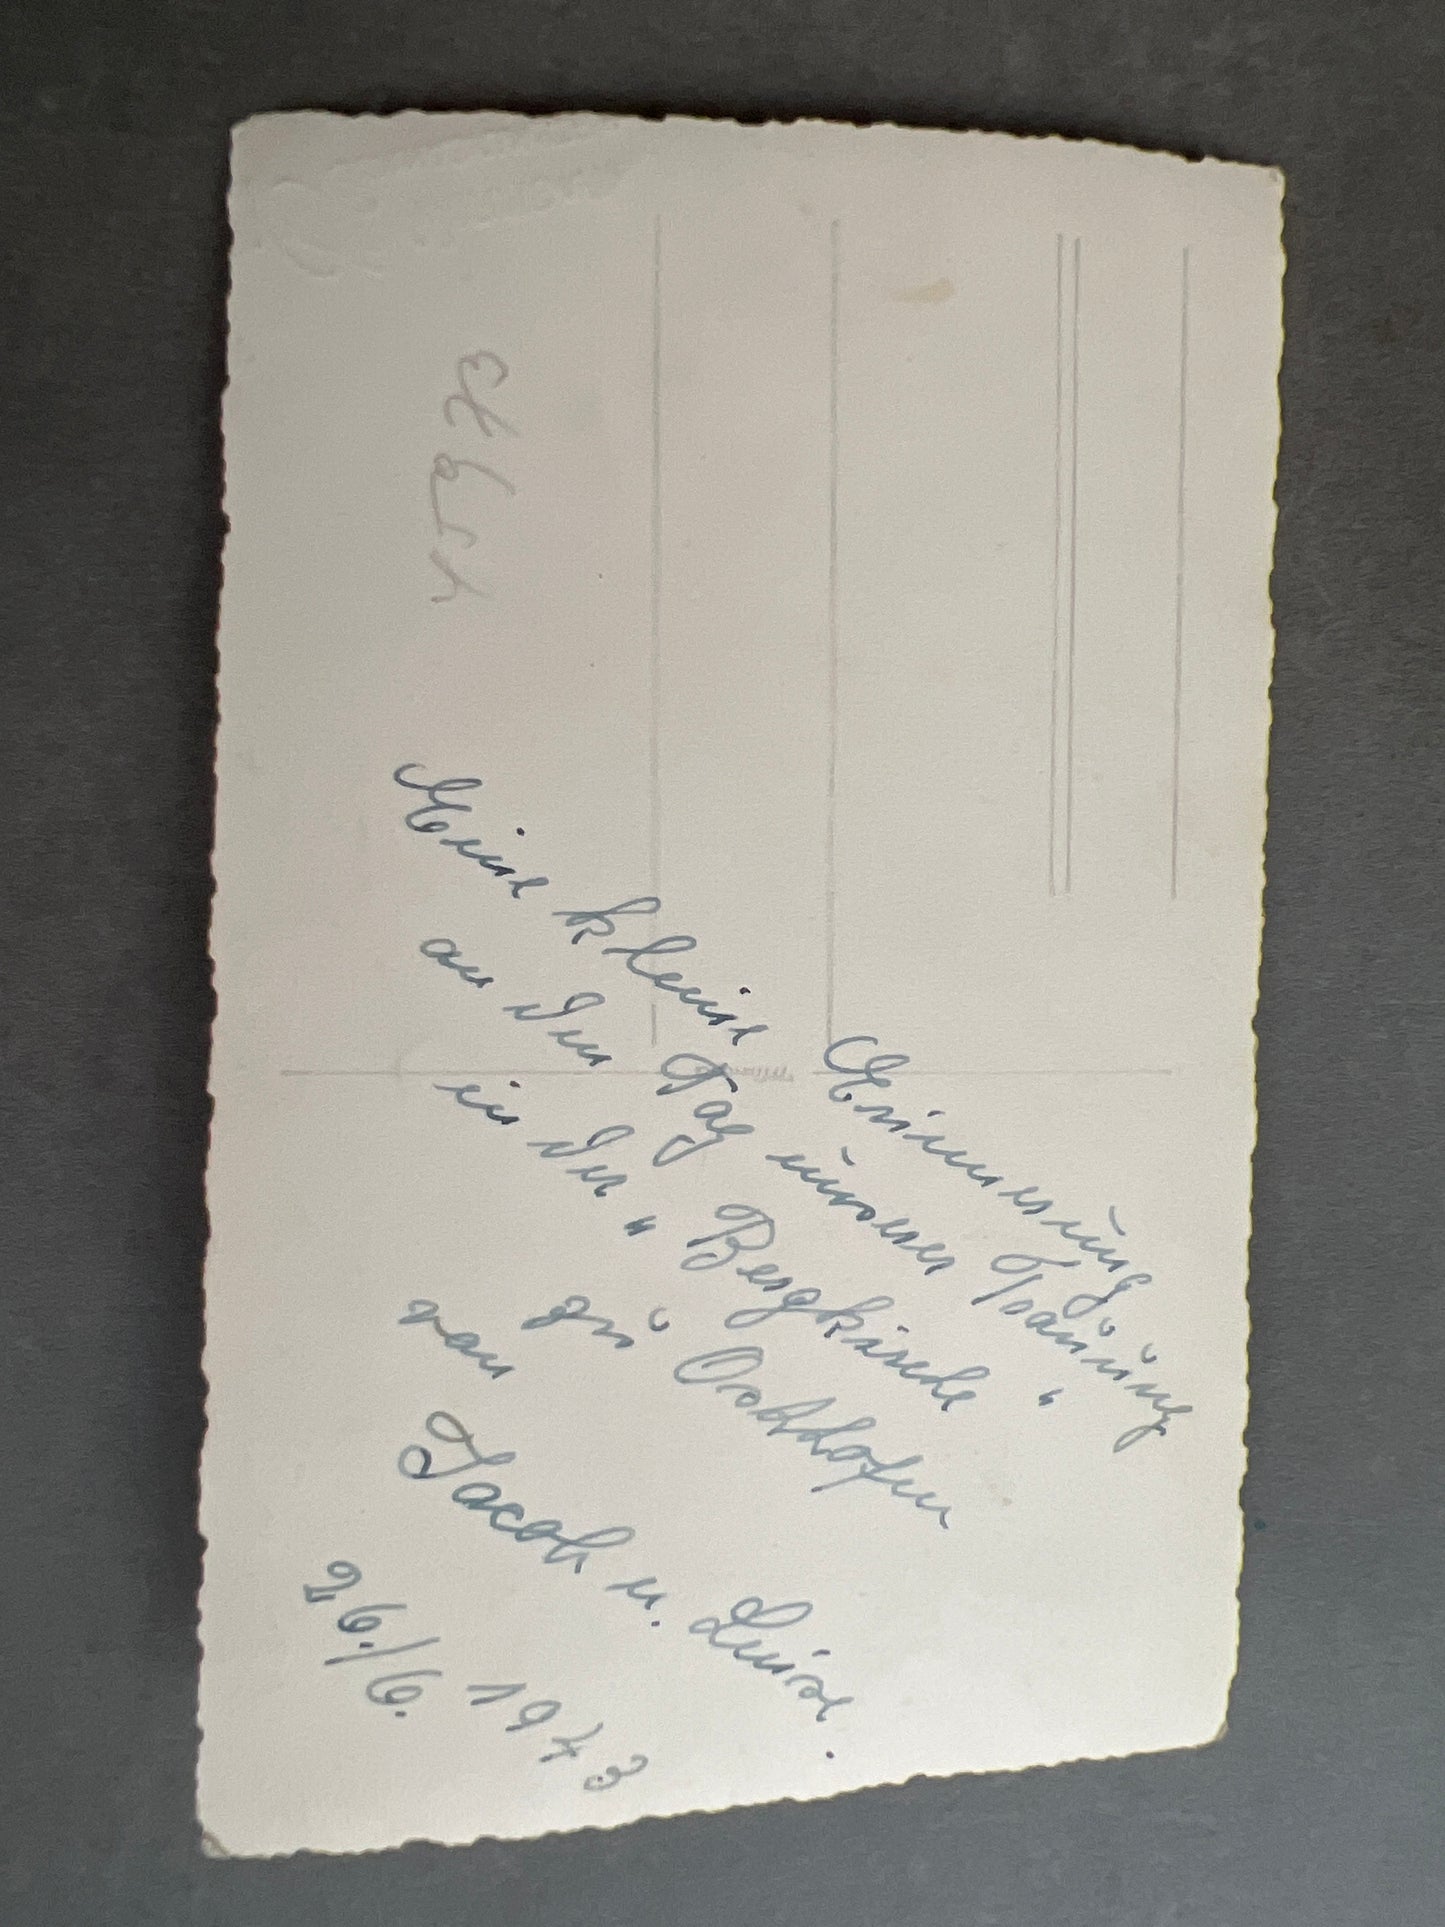 Eine kleine Erinnerung
an den Tag unserer Trauung
in der "Bergkirche"
zu Osthofen
von
Jacob u. Luise.
26./6. 1943